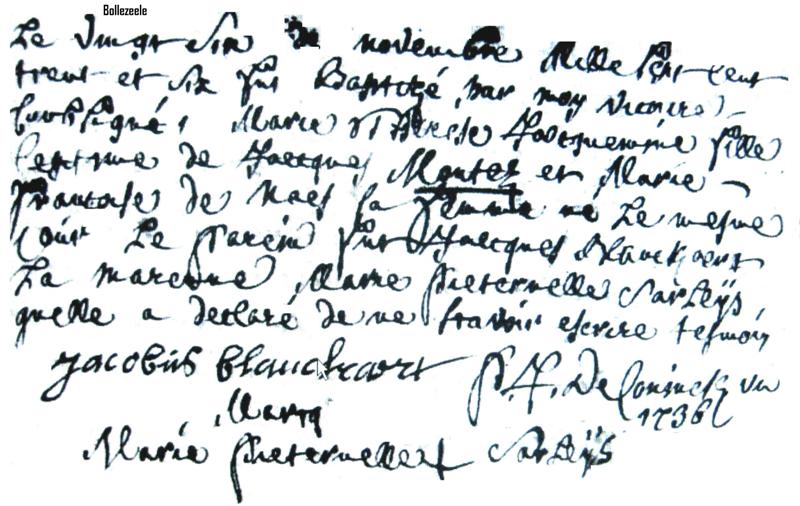 Bollezeele
Le vingt six de novembre mille sept cent
trent et six fut Baptizé par moy vicaire
soubsigné Marie Therese Jacquemine fille
legitime de Jacques Montez et Marie
francoise de Naes sa femme né le mesme
jour Le parein fut Jacques Blanckaert
La marenne Marie pieternelle Sarleÿs
quelle a declaré de ne scavoir escrire tesmoin
jacobus blanckaert P. F. De Coninck vic
1736
Marcq
Marie pieternelle Sarleÿs